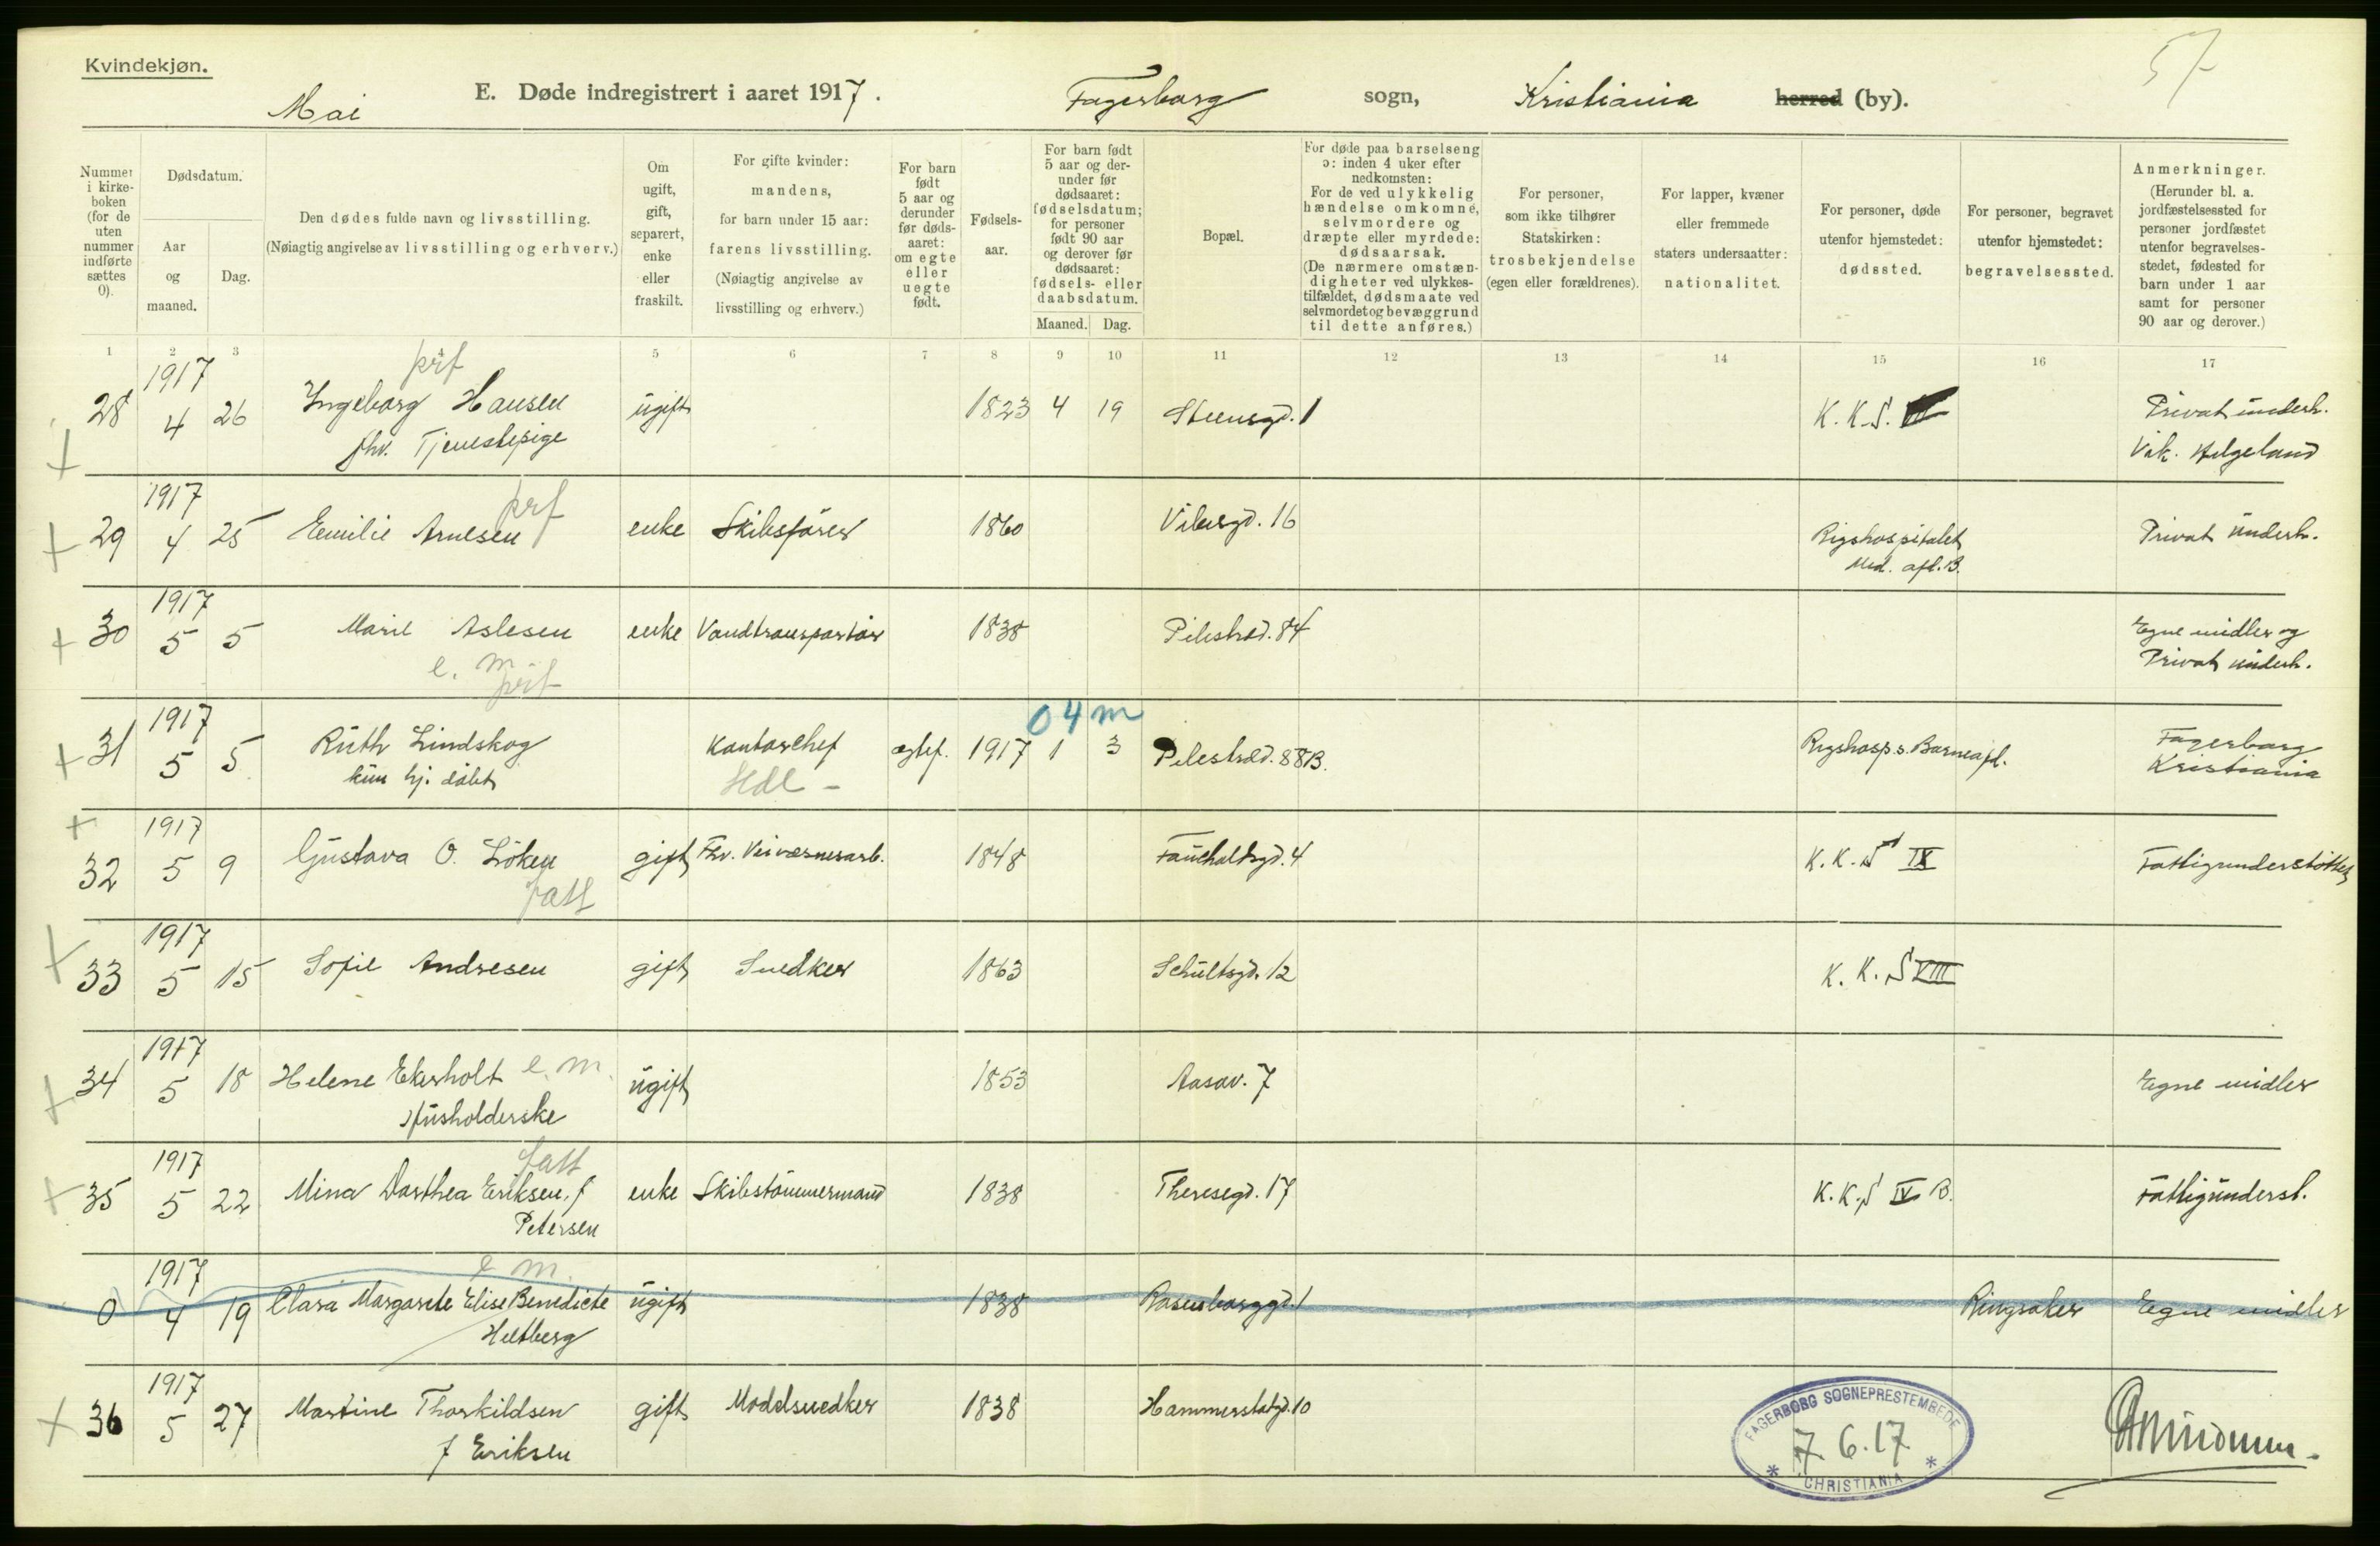 Kvindekjøn.
57
Mai E. Døde indregistrert i aaret 1917. Fagerborg sogn, Kristiania herred (by).
Nummer i kirke-boken (for de uten nummer indførte sættes 0).
Dødsdatum.
Aar og maaned.
Dag.
Den dødes fulde navn og livsstilling.
(Nøiagtig angivelse av livsstilling og erhverv.)
Om ugift, gift, separert, enke eller fraskilt.
For gifte kvinder: mandens, for barn under 15 aar: farens livsstilling. (Nøiagtig angivelse av livsstilling og erhverv.)
For barn født 5 aar og derunder før døds-aaret: om egte eller uegte født.
Fødsels-aar.
For barn født 5 aar og der-under før dødsaaret: fødselsdatum; for personer født 90 aar og derover før dødsaaret: fødsels- eller daabsdatum.
Maaned. Dag.
Bopæl.
For døde paa barselseng ɔ: inden 4 uker efter nedkomsten: For de ved ulykkelig hændelse omkomne, selvmordere og dræpte eller myrdede: dødsaarsak. (De nærmere omstæn-digheter ved ulykkes-tilfældet, dødsmaate ved selvmordet og bevæggrund til dette anføres.)
For personer, som ikke tilhører Statskirken: trosbekjendelse (egen eller forældrenes).
For lapper, kvæner eller fremmede staters undersaatter: nationalitet.
For personer, døde utenfor hjemstedet: dødssted.
For personer, begravet utenfor hjemstedet: begravelsessted.
Anmerkninger. (Herunder bl. a. jordfæstelsessted for personer jordfæstet utenfor begravelses-stedet, fødested for barn under 1 aar samt for personer 90 aar og derover.)
1 2 3 5 6 7 8 9 10 11 12 13 14 15 16 17
1917 prf
28 4 26 Ingeborg Hansen ugift 1823 4 19 Steensgd. 1 K.K.S. Privat underh.
fhv. Tjenestepige Vik. Helgeland
1917 prf
29 4 25 Emilie Arnesen enke Skibsfører 1860 Vibesgd. 16 Rigshospitalet Privat underh.
Med. afd. B.
1917
30 5 5 Marie Aslesen enke Vandtransportør 1838 Pilestræd. 84 Egne midler og
e. m. prif Privat underh.
1917 0 4 m
31 5 5 Ruth Lindskog Kontorchef egtef. 1917 1 3 Pilestræd. 88B. Rigshosp.s. Barneafd. Fagerborg
kun hj. døbt Hdl - Kristiania
1917
32 5 9 Gustava O. Löken gift Fhv. Veivæsnesarb. 1848 Fauchaldsgd. 4 K.K.S IX Fattigunderstöttet
fatt
1917
33 5 15 Sofie Andresen gift Snedker 1863 Schultsgd. 12 K.K.S VIII
1917
34 5 18 Helene Ekerholt e. m. ugift 1853 Aasav. 7 Egne midler
Husholderske
1917 fatt
35 5 22 Mina Dorthea Eriksen, f enke Skibstömmermand 1838 Theresegd. 17 K.K.S IV B. Fattigunderst.
Petersen
1917 e m.
0 4 19 Clara Margarete Elise Benedicte ugift 1838 Rosenborggd. 1 Ringsaker Egne midler
Heltberg
1917
36 5 27 Martine Thorkildsen gift Modelsnedker 1838 Hammerstadgd. 10
f Eriksen
FAGERBORG SOGNEPRESTEMBEDE
7. 6. 17
* CHRISTIANIA *